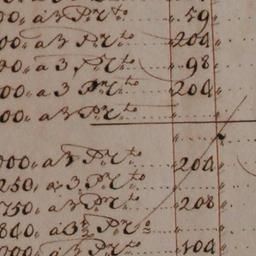 00, a 3 P. Cto „ 59 „
00, a 3 P. Cto „ 204 „
90, a 3 P. Cto „ 98 „
00, a 3 P. Cto „ 204 „
00, a 3 P. Cto
000, a 3 P. Cto „ 204 „
250, a 3 P. Cto „
750, a 3 P. Cto „ 208 „
840, a 3½ P. Cto „
200, a 3 P. Cto „ 104 „